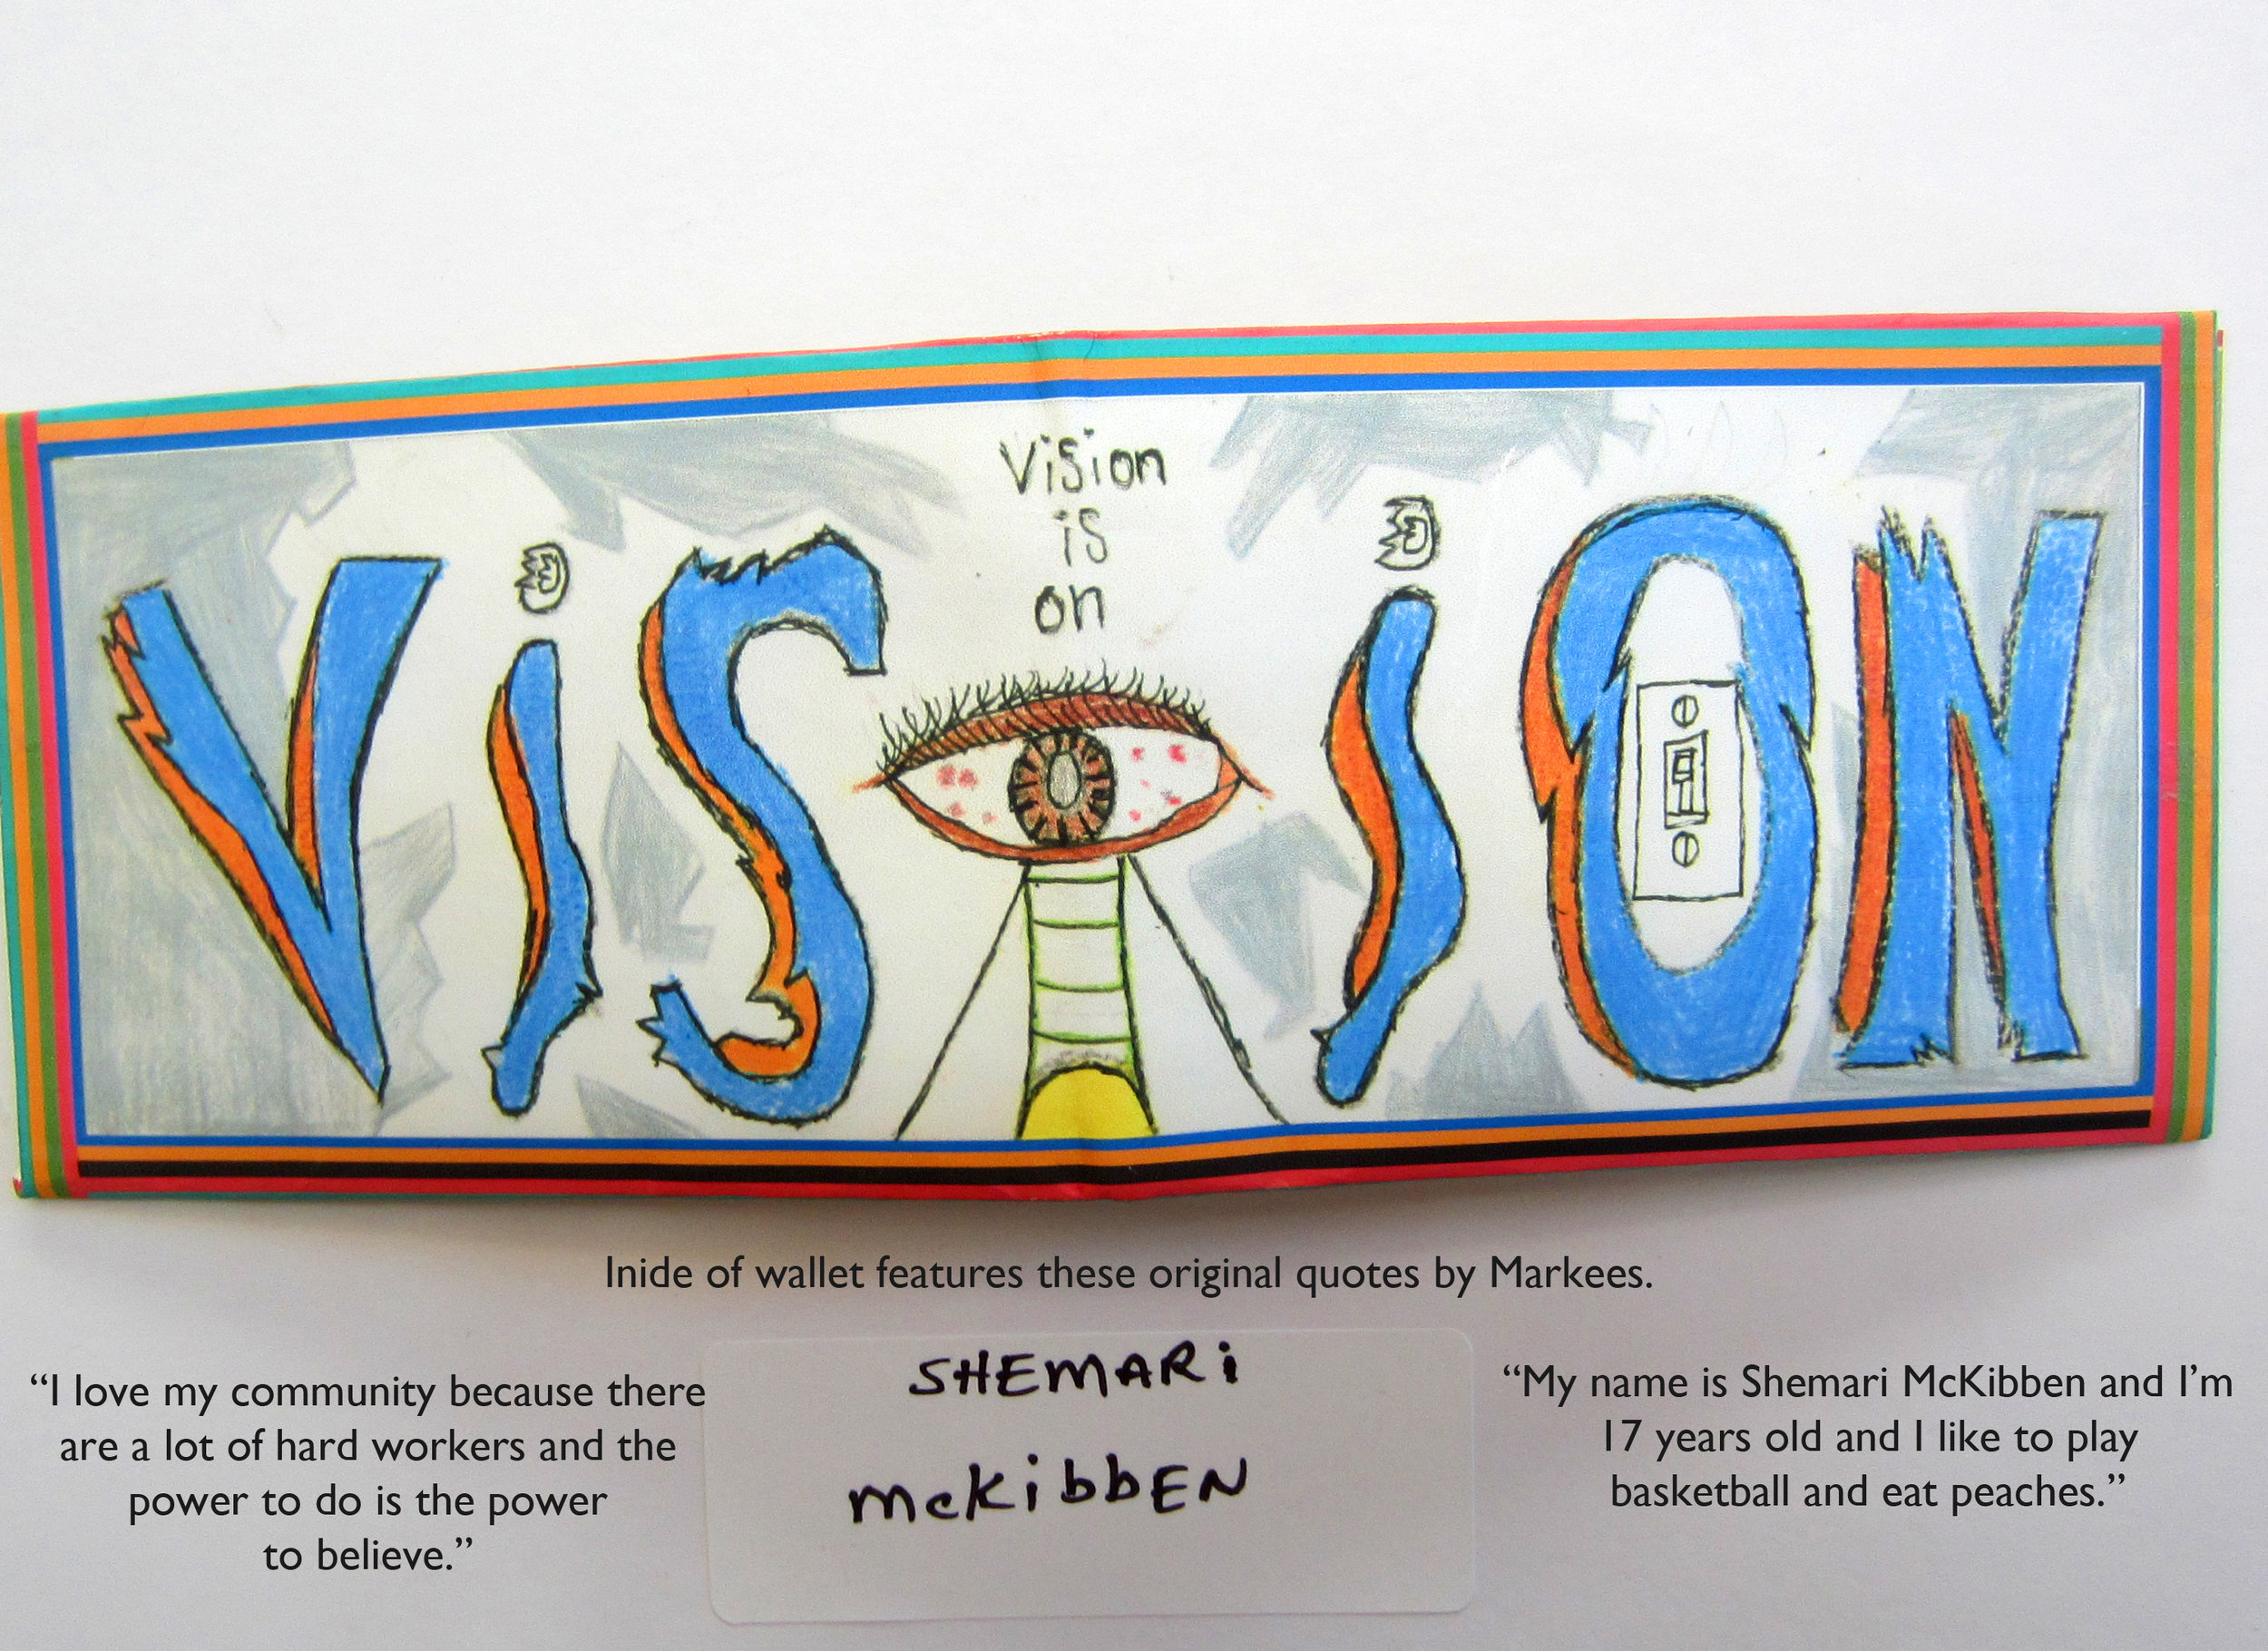 Vision
is
on
ViSiON
Inide of wallet features these original quotes by Markees.
“I love my community because there
are a lot of hard workers and the
power to do is the power
to believe.”
SHEMARi
mcKibbEN
“My name is Shemari McKibben and I’m
17 years old and I like to play
basketball and eat peaches.”